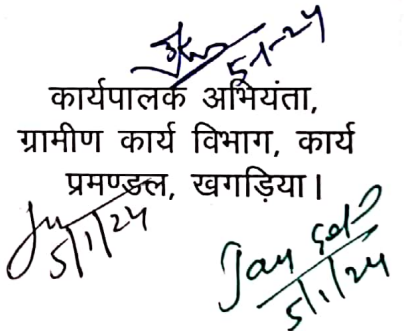 5-1-24
कार्यपालक अभियंता,
ग्रामीण कार्य विभाग, कार्य
प्रमण्डल, खगड़िया।
5/1/24
5/1/24